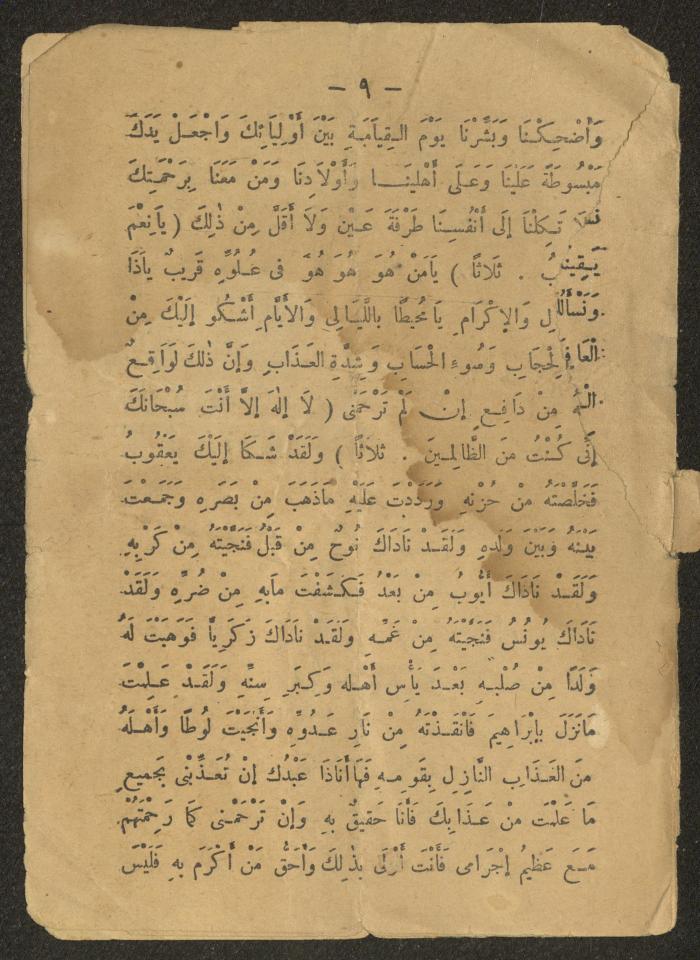 — ٩ —
وَأَضْحِكْنَا وَبَشِّرْنَا يَوْمَ الْقِيَامَةِ بَيْنَ أَوْلِيَائِكَ وَاجْعَلْ يَدَكَ
مَبْسُوطَةً عَلَيْنَا وَعَلَى أَهْلِينَا وَأَوْلَادِنَا وَمَنْ مَعَنَا بِرَحْمَتِكَ
تَكِلْنَا إِلَى أَنْفُسِنَا طَرْفَةَ عَيْنٍ وَلَا أَقَلَّ مِنْ ذٰلِكَ ( يَانِعْمَ
. ثَلَاثًا ) يَامَنْ هُوَ هُوَ هُوَ فى عُلُوِّهِ قَرِيبٌ يَاذَا
وَالإِكْرَامِ يَامُحِيطًا بِاللَّيَالِى وَالأَيَّامِ أَشْكُو إِلَيْكَ مِنْ
الْحِجَابِ وَسُوءِ الْحِسَابِ وَشِدَّةِ الْعَذَابِ وَإِنَّ ذٰلِكَ لَوَاقِعٌ
مِنْ دَافِعٍ إِنْ لَمْ تَرْحَمْنِى ( لَا إِلٰهَ إِلاَّ أَنْتَ سُبْحَانَكَ
إِنِّى كُنْتُ مِنَ الظَّالِمِينَ . ثَلَاثًا ) وَلَقَدْ شَكَا إِلَيْكَ يَعْقُوبُ
فَخَلَّصْتَهُ مِنْ حُزْنِهِ وَرَدَدْتَ عَلَيْهِ مَاذَهَبَ مِنْ بَصَرِهِ وَجَمَعْتَ
بَيْنَهُ وَبَيْنَ وَلَدِهِ وَلَقَدْ نَادَاكَ نُوحٌ مِنْ قَبْلُ فَنَجَّيْتَهُ مِنْ كَرْبِهِ
وَلَقَدْ نَادَاكَ أَيُّوبُ مِنْ بَعْدُ فَكَشَفْتَ مَابِهِ مِنْ ضُرِّهِ وَلَقَدْ
نَادَاكَ يُونُسُ فَنَجَّيْتَهُ مِنْ غَمِّهِ وَلَقَدْ نَادَاكَ زَكَرِيَّا فَوَهَبْتَ لَهُ
وَلَدًا مِنْ صُلْبِهِ بَعْدَ يَأْسِ أَهْلِهِ وَكِبَرِ سِنِّهِ وَلَقَدْ عَلِمْتَ
مَانَزَلَ بِإِبْرَاهِيمَ فَأَنْقَذْتَهُ مِنْ نَارِ عَدُوِّهِ وَأَنْجَيْتَ لُوطًا وَأَهْلَهُ
مِنَ الْعَذَابِ النَّازِلِ بِقَوْمِهِ فَهَاأَنَاذَا عَبْدُكَ إِنْ تُعَذِّبْنِى بِجَمِيعِ
مَا عَلِمْتَ مِنْ عَذَابِكَ فَأَنَا حَقِيقٌ بِهِ وَإِنْ تَرْحَمْنِى كَمَا رَحِمْتَهُمْ
مَعَ عَظِيمِ إِجْرَامِى فَأَنْتَ أَوْلَى بِذٰلِكَ وَأَحَقُّ مَنْ أَكْرَمَ بِهِ فَلَيْسَ